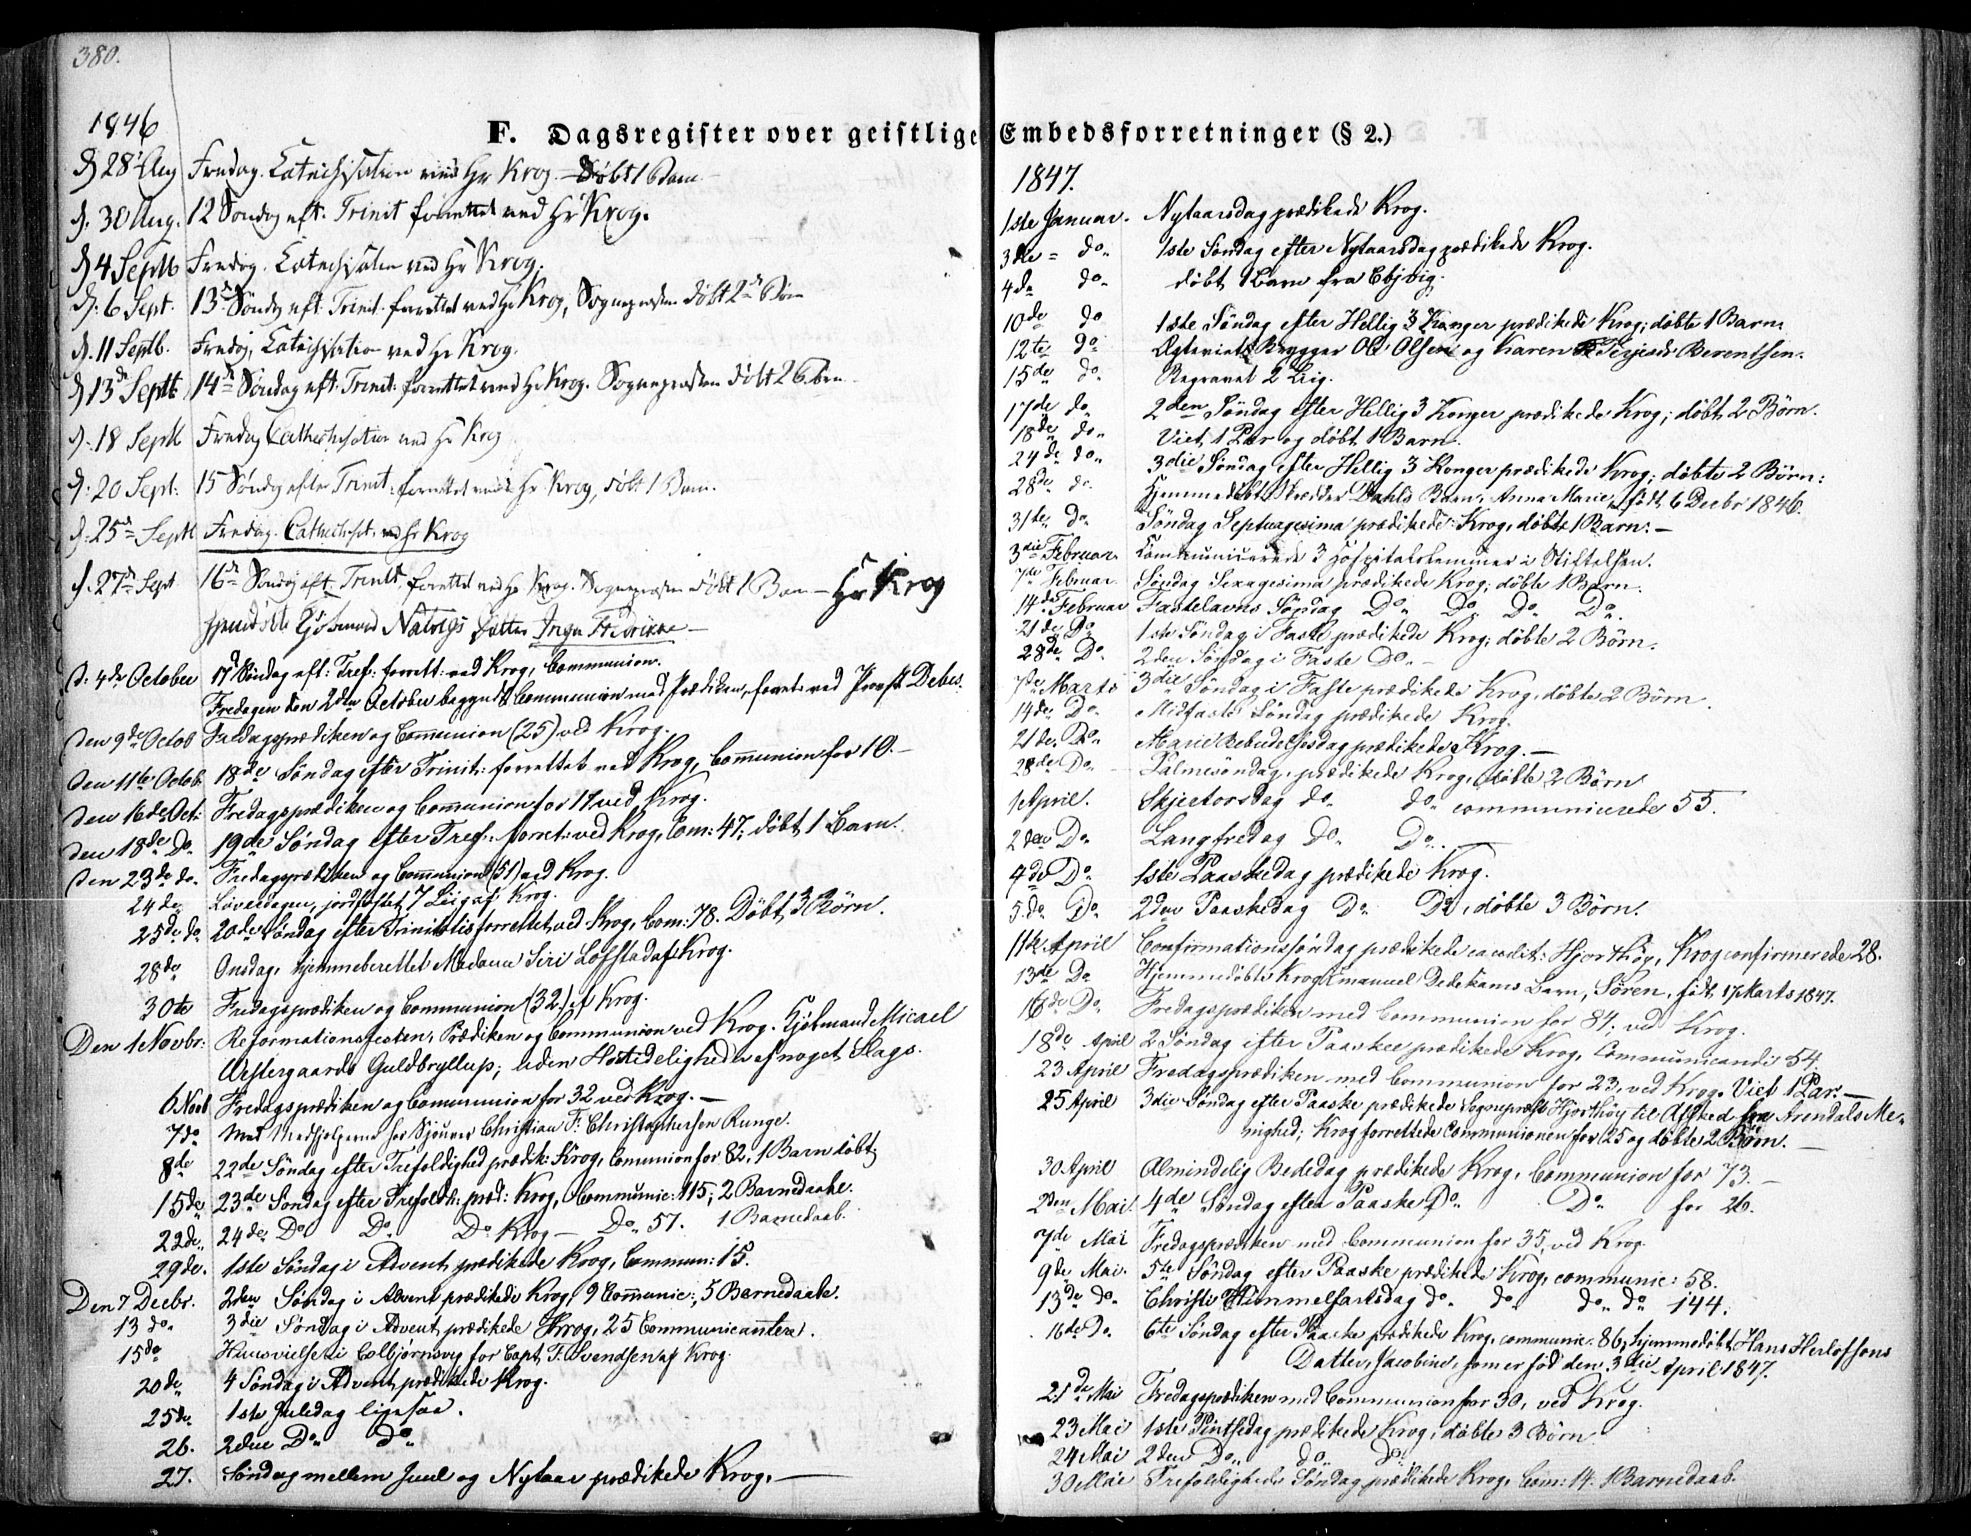 380.
F. Dagsregister over geistlige Embedsforretninger (§ 2.)
1846
D 28 Aug Fredag. Catechisation ved Hr Krog. — Døbt 1 Barn
D. 30 Aug. 12 Søndag eft. Trinit forrettet ved Hr Krog.
D 4 Septb Fredag. Catechisation ved Hr Krog.
D. 6 Sept. 13 Søndag eft. Trinit. forrettet ved Hr Krog, Sognepresten døbt 2 Børn
D. 11 Septb. Fredag, Catechisation ved Hr Krog.
D 13de Septb 14de Søndag eft. Trinit: forrettet ved Hr Krog. Sognepresten døbt 2 Børn
D. 18 Septb Fredag Catechisation ved Hr Krog
D: 20 Sept: 15 Søndag efter Trinit: forrettet ved Hr Krog, døbt 1 Barn.
D. 25de Septb Fredag. Catechisat. ved Hr Krog
D. 27de Sept 16de Søndag eft. Trinit. forrettet ved Hr Krog. Sognepresten døbt 1 Barn — Hr Krog
hjemdøbte Kjøbmand Natvigs Datter Inga Fredrikke —
D. 4de October 17d Søndag eft: Tref: forrett: ved Krog, Communion.
Fredagen den 2den October begyndte Communion med Prædiken, forret. ved Provst Debes.
Den 9de Octob Fredagsprædiken og Communion (25) ved Krog.
Den 11te Octob. 18de Søndag efter Trinit: forrettet ved Krog, Communion for 10. —
Den 16de Oct: Fredagsprædiken og Communion for 17 ved Krog.
Den 18de Do. 19de Søndag efter Tref. forret: ved Krog, Com: 47; døbt 1 Barn.
Den 23de do. Fredagsprædiken og Communion (51) ved Krog.
24de Løverdagen, jordfæstet 7 Liig af Krog.
25de do 20de Søndag efter Trinitatis forrettet ved Krog, Com: 78. Døbt 3 Børn.
28de Onsdag, hjemmeberettet Madame Siri Løfstad af Krog.
30te Fredagsprædiken og Communion (32) af Krog.
Den 1 Novbr: Reformationsfesten, Prædiken og Communion ved Krog. Kjøbmand Micael
Østergaards Guldbryllup; uden Høitidelighed af noget Slags.
6 Novb Fredagsprædiken og Communion for 32 ved Krog. —
7do Med Medhjelperne hos Sjømand Christian F: Christophersen Runge.
8de 22de Søndag efter Trefoldighed prædik: Krog, Communion for 82, 1 Barn døbt.
15de 23de Søndag efter Trefoldh: præd: Krog, Communic: 115; 2 Barnedaabe.
22de 24de Do Do Do Krog — Do 57. 1 Barnedaab.
29de. 1ste Søndag i Advent prædikede Krog, Commun: 15.
Den 7 Decbr. 2den Søndag i Advent prædikede Krog, 9 Communic:, 5 Barnedaabe.
13 do. 3die Søndag i Advent prædikede Krog, 25 Communicantere.
15do Huusvielse i Colbjørnsvig for Capt. F: Svendsen af Krog.
20de 4 Søndag i Advent prædikede Krog.
25de 1ste Juledag ligesaa.
26. 2den Do do
27. Søndag mellem Juul og Nytaar prædikede Krog. —
1847.
1ste Januar. Nytaarsdag prædikede Krog.
3die do. 1ste Søndag efter Nytaarsdag prædikede Krog.
4de do. døbt 1 Barn fra Ebjvig.
10de do 1ste Søndag efter Hellig 3 Konger prædikede Krog; døbte 1 Barn.
12te do Egteviet Brygger Ole Olsen og Karen Terjesdr Berentsen.
15de do. Begravet 2 Liig.
17de do 2den Søndag efter Hellig 3 Konger prædikede Krog; døbt 2 Børn.
18de do. Viet 1 Par og døbt 1 Barn.
24de do. 3die Søndag efter Hellig 3 Konger prædikede Krog; døbte 2 Børn:
28de do. Hjemmedøbt Skredder Dahls Barn, Anna Marie, født 6 Decbr 1846.
31te Do. Søndag Septuagesima prædikede Krog, døbte 1 Barn: —
3die Februar. Communicerede 3 Hospitalslemmer i Stiftelsen.
7de Februar. Søndag Sexagesima prædikede Krog; døbte 1 Barn.
14de Februar Fastelavns Søndag Do Do Do Do.
21de Do 1ste Søndag i Faste prædikede Krog; døbte 2 Børn.
28de Do. 2den Søndag i Faste Do. —
7de Marts 3die Søndag i Faste prædikede Krog, døbte 2 Børn.
14de Do. Midfaste Søndag prædikede Krog.
21de Do. Mariæ Bebudelsesdag prædikede Krog. —
28de Do. Palmesøndag, prædikede Krog, døbte 2 Børn
1 April. Skjertorsdag do. do. communicerede 55.
2den Do. Langfredag Do. Do. —
4de Do 1ste Paaskedag prædikede Krog.
5. de Do. 2den Paaskedag Do Do, døbte 3 Børn.
11te April Confirmationssøndag prædikede cand: Hjorthøg, Krog confirmerede 28.
13de Do Hjemmedøbte Krog Emanuel Dedekams Barn, Søren, født 17 Marts 1847.
16de Do. Fredagsprædiken med Communion for 84; ved Krog.
18de April 2 Søndag efter Paaske prædikede Krog, Communicanter 54.
23 April Fredagsprædiken med Communion for 23, ved Krog. Viet 1 Par. —
25 April 3die Søndag efter Paaske prædikede Sognepræst Hjorthøg til Afsked fra Arendals Me-
nighed; Krog forrettede Communionen for 25 og døbte 2 Børn. —
30 April Almindelig Bededag prædikede Krog, Communion for 73. —
2den Mai. 4de Søndag efter Paaske Do. Do. for 26.
7de Mai Fredagsprædiken med Communion for 35, ved Krog.
9de Mai. 5te Søndag efter Paaske prædikede Krog, communic: 58.
13de Do. Christi Himmelfartsdag do. do. do. do 144.
16de Do. 6te Søndag efter Paaske prædikede Krog, communic: 86, hjemmedøbt Hans Herlofsons
Datter, Jacobine, som er fød den 3die April 1847.
21de Mai Fredagsprædiken med Communion for 30, ved Krog.
23 Mai 1ste Pintsedag prædikede Krog, døbte 3 Børn
24 Mai 2den Do. do. do.
30 Mai Trefoldigheds Søndag prædikede Krog, Com: 14. 1 Barnedaab.